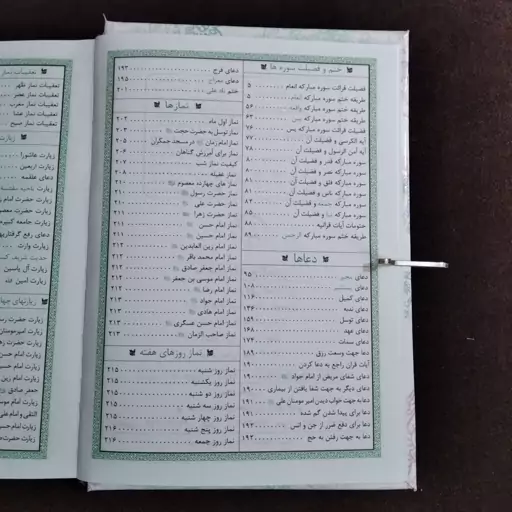 ختم و فضیلت سوره ها
فضیلت قرائت سوره مبارکه انعام ۵
طریقه ختم سوره مبارکه انعام ۵
فضیلت قرائت سوره مبارکه واقعه ۵۶
طریقه ختم سوره مبارکه یس ۶۳
فضیلت قرائت سوره مبارکه یس ۷۶
آیة الکرسی و فضیلت آن ۷۷
آیه آمن الرسول و فضیلت آن ۷۸
سوره مبارکه قدر و فضیلت آن ۸۰
سوره مبارکه عصر و فضیلت آن ۸۰
سوره مبارکه فلق و فضیلت آن ۸۰
سوره مبارکه ناس و فضیلت آن ۸۱
سوره مبارکه جمعه و فضیلت آن ۸۲
سوره مبارکه نبا و فضیلت آن ۸۵
ختومات آیات قرآنیه ۸۸
طریقه ختم سوره مبارکه الرحمن ۸۹
دعاها
دعای مجیر ۹۵
دعای یستشیر ۱۰۸
دعای کمیل ۱۱۶
دعای ندبه ۱۳۶
دعای توسل ۱۵۹
دعای عهد ۱۶۸
دعای سمات ۱۷۴
دعا جهت وسعت رزق ۱۸۹
آیات قرآن راجع به دعا کردن ۱۹۰
دعای شفای مریض از امام جواد ۱۹۰
دعای دیگر به جهت شفا یافتن از بیماری ۱۹۰
دعا به جهت خواب دیدن امیر مومنان علی ۱۹۰
دعا برای پیدا شدن گم شده ۱۹۱
دعا برای دفع ضرر از جن و انس ۱۹۲
دعا به جهت رفتن به حج ۱۹۲
دعای فرج ۱۹۳
دعای معراج ۱۹۵
ختم ناد علی ۲۰۱
نمازها
نماز اول ماه ۲۰۲
نماز توسل به حضرت حجت ۲۰۳
نماز امام زمان در مسجد جمکران ۲۰۵
نماز برای آمرزش گناهان ۲۰۷
کیفیت نماز شب ۲۰۷
نماز غفیله ۲۰۸
نماز های چهارده معصوم ۲۱۰
نماز حضرت رسول ۲۱۰
نماز حضرت علی ۲۱۰
نماز حضرت زهرا ۲۱۱
نماز امام حسن ۲۱۱
نماز امام حسین ۲۱۱
نماز امام زین العابدین ۲۱۲
نماز امام محمد باقر ۲۱۲
نماز امام جعفر صادق ۲۱۲
نماز امام موسی بن جعفر ۲۱۲
نماز امام رضا ۲۱۲
نماز امام جواد ۲۱۳
نماز امام هادی ۲۱۳
نماز امام حسن عسگری ۲۱۳
نماز صاحب الزمان ۲۱۳
نماز روزهای هفته
نماز روز شنبه ۲۱۵
نماز روز یکشنبه ۲۱۵
نماز روز دو شنبه ۲۱۵
نماز روز سه شنبه ۲۱۵
نماز روز چهار شنبه ۲۱۵
نماز روز پنج شنبه ۲۱۶
نماز روز جمعه ۲۱۶
تعقیبات نماز
تعقیبات نماز ظهر
تعقیبات نماز عصر
تعقیبات نماز مغرب
تعقیبات نماز عشا
تعقیبات نماز صبح
زیارت عاشورا
زیارت اربعین
دعای علقمه
زیارت ناحیه مقدسه
زیارت حضرت امام
زیارت حضرت معصو
زیارت جامعه کبیره
دعای رفع گرفتاریها
زیارت وارث
حدیث شریف کسا
زیارت آل یاسین
زیارت امین الله
زیارتهای چها
زیارت حضرت رسو
زیارت امیرمومنان
زیارت حضرت زهرا
زیارت امام حسن
زیارت امام حسین
زیارت امام زین
جعفر صادق
زیارت امام موس
التقی و امام علی
زیارت امام حسن
زیارت حضرت